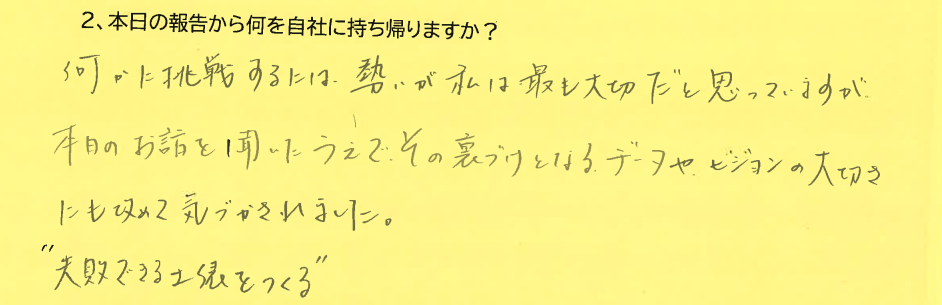 2、本日の報告から何を自社に持ち帰りますか？
何かに挑戦するには、勢いが私は最も大切だと思っていますが、
本日のお話を聞いたうえで、その裏づけとなるデータや、ビジョンの大切さ
にも改めて気づかされました。
"失敗できる土壌をつくる"